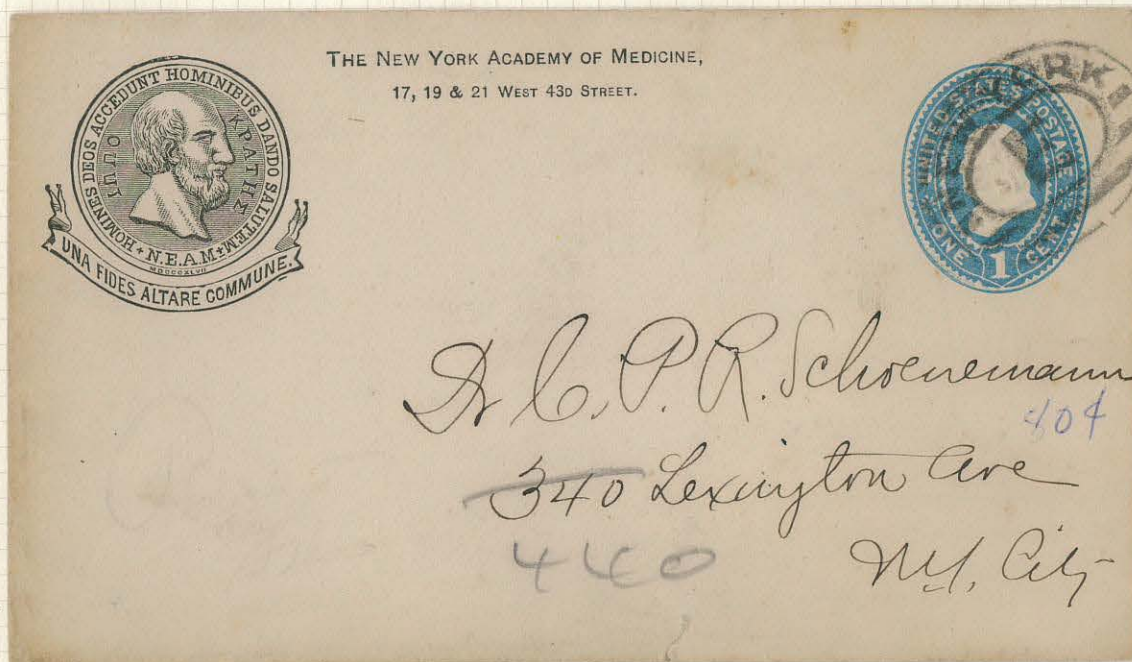 THE NEW YORK ACADEMY OF MEDICINE,
17, 19 & 21 WEST 43D STREET.
HOMINES DEOS ACCEDUNT HOMINIBUS DANDO SALUTEM
ΙΠΠΟ
ΚΡΑΤΗΣ
N.E.A.M
MDCCCXLVII
UNA FIDES ALTARE COMMUNE.
UNITED STATES POSTAGE
ONE 1 CENT
Dr C. P. R. Schoenemann
80¢
340 Lexington Ave
440
N.Y. City